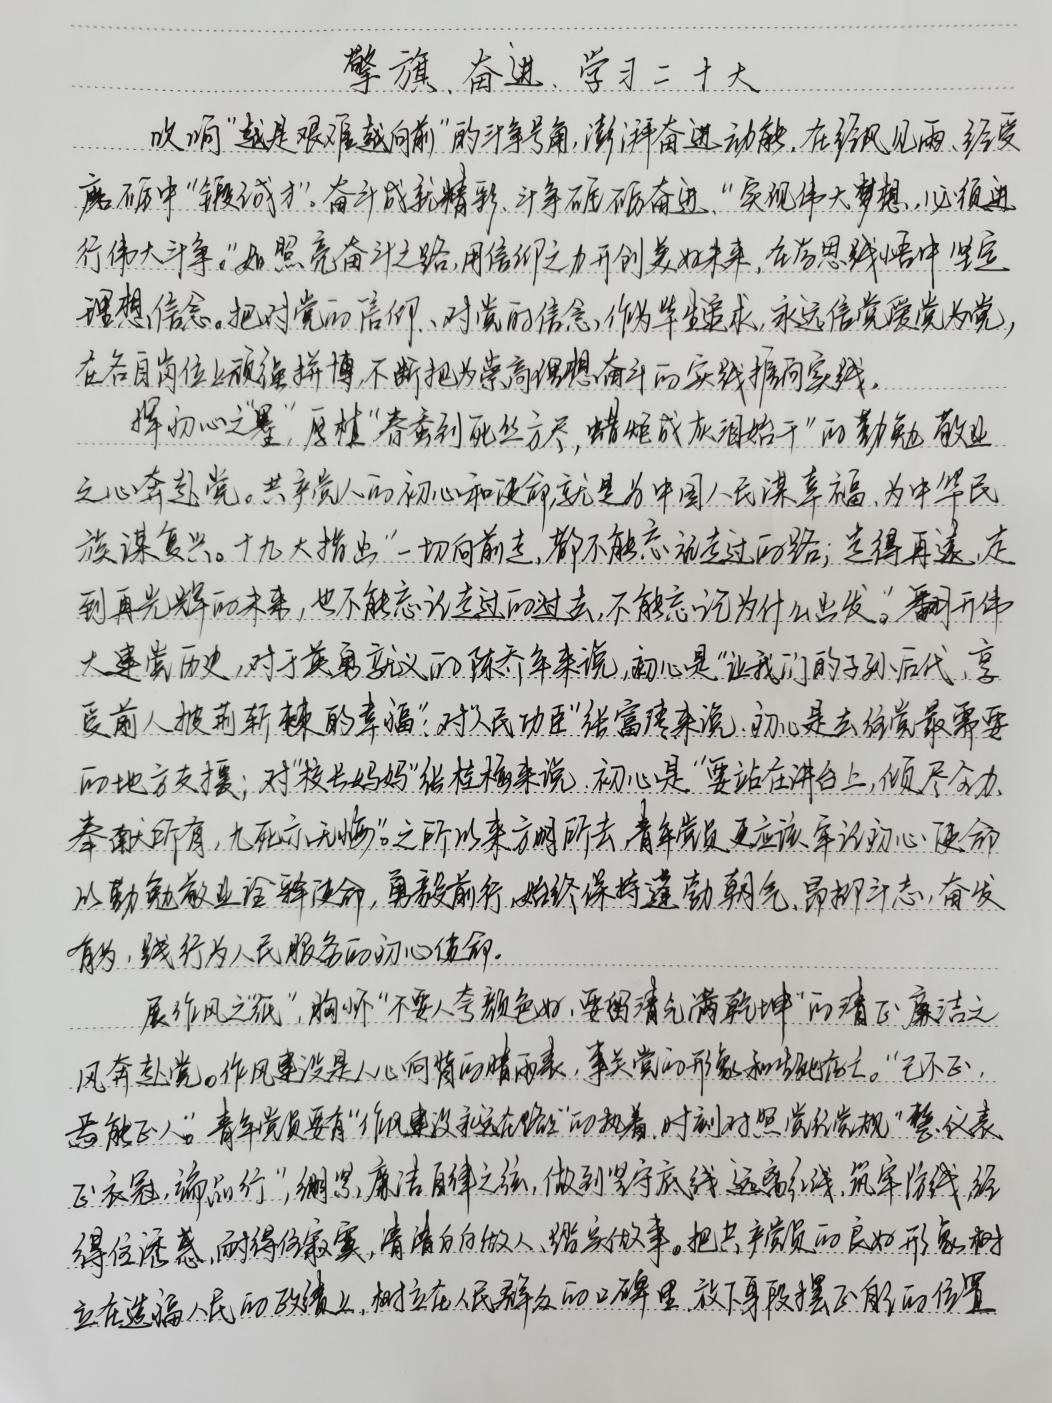 擎旗、奋进、学习二十大
吹响“越是艰难越向前”的斗争号角,澎湃奋进动能,在经风见雨、经受
磨砺中“锻成才”。奋斗成就精彩、斗争砥砺奋进,“实现伟大梦想,必须进
行伟大斗争。”如照亮奋斗之路,用信仰之力开创美好未来,在学思践悟中坚定
理想信念。把对党的信仰、对党的信念,作为毕生追求,永远信党爱党为党,
在各自岗位上顽强拼博,不断把为崇高理想奋斗的实践推向实践。
挥初心之“墨”,厚植“春蚕到死丝方尽,蜡炬成灰泪始干”的勤勉敬业
之心奔赴党。共产党人的初心和使命,就是为中国人民谋幸福,为中华民
族谋复兴。十九大指出“一切向前走,都不能忘记走过的路;走得再远、走
到再光辉的未来,也不能忘记走过的过去,不能忘记为什么出发。”翻开伟
大建党历史,对于英勇就义的陈乔年来说,初心是“让我们的子孙后代,享
受前人披荆斩棘的幸福”;对“人民功臣”张富清来说,初心是去给党最需要
的地方支援;对“校长妈妈”张桂梅来说,初心是“要站在讲台上,倾尽全力、
奉献所有,九死亦无悔”。之所以来方明所去,青年党员更应该牢记初心使命
以勤勉敬业诠释使命,勇毅前行,始终保持蓬勃朝气、昂抑斗志,奋发
有为,践行为人民服务的初心使命。
展作风之“纸”,胸怀“不要人夸颜色好,要留清气满乾坤”的清正廉洁之
风奔赴党。作风建设是人心向背的晴雨表,事关党的形象和生死存亡。“己不正,
焉能正人。”青年党员要有“作风建设永远在路上”的执着,时刻对照党纪党规“整仪表
正衣冠,端品行”,绷紧廉洁自律之弦,做到坚守底线、远离红线、筑牢防线,经
得住诱惑,耐得住寂寞,清清白白做人、踏实做事。把共产党员的良好形象树
立在造福人民的政绩上,树立在人民群众的口碑里,放下身段摆正自己的位置